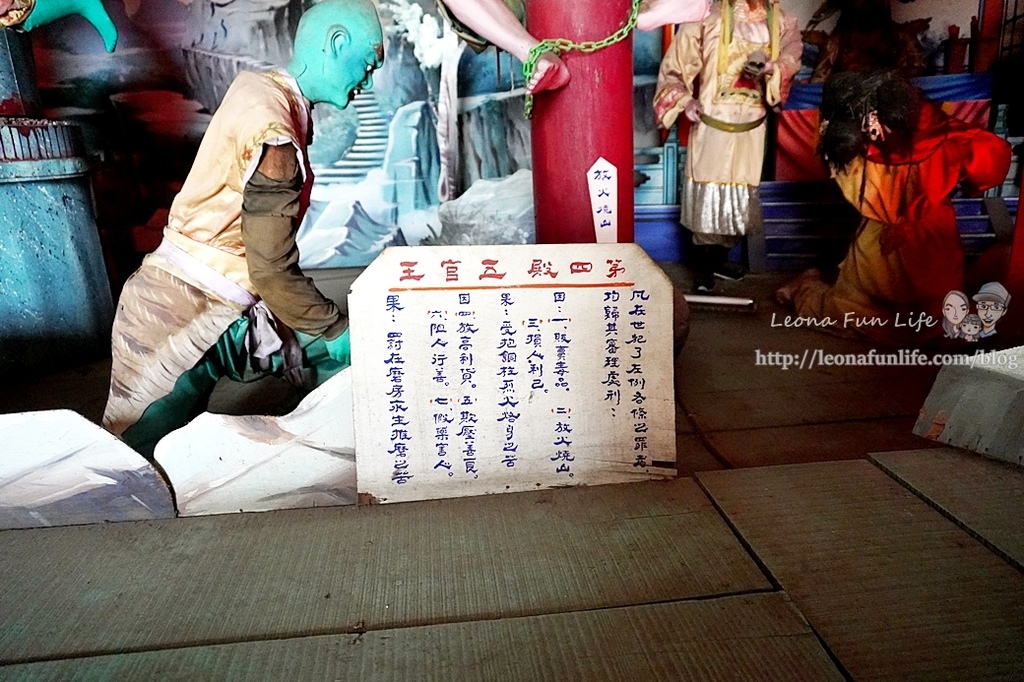 放火燒山
第四殿五官王
凡在世犯了左列各條之罪者
均歸其審理處刑：
因：一、販賣毒品。二放火燒山。
三、損人利己。
果：受抱銅柱烈火烙身之苦
因四放高利貸。五欺壓善良。
六阻人行善。七假藥害人。
果：罰在磨房永生推磨之苦
Leona Fun Life
http://leonafunlife.com/blog